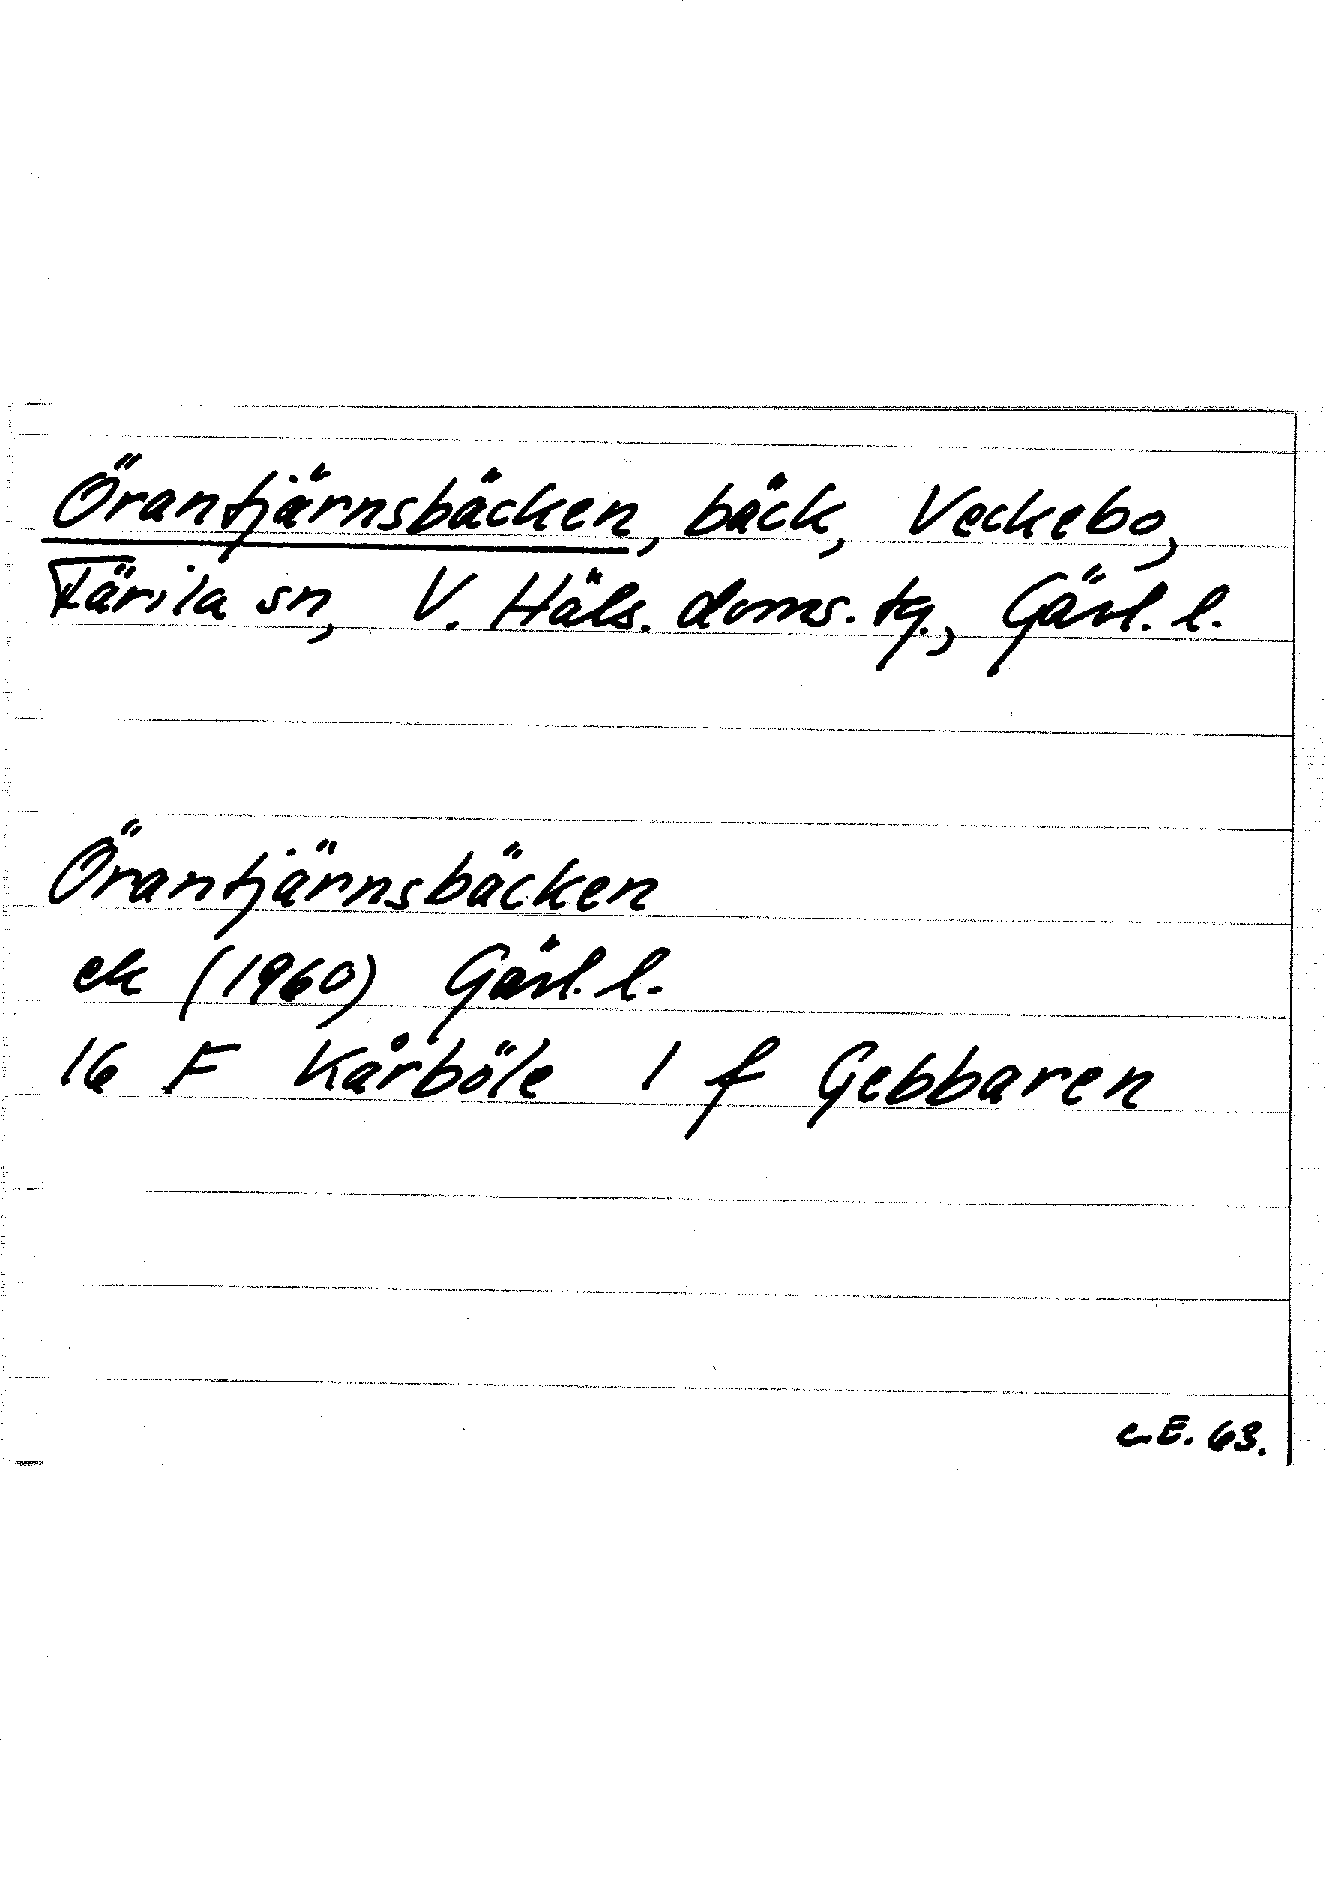 Örantjärnsbäcken, bäck, Veckebo,
Färila sn, V. Häls. doms. tg., Gävl. l.
Örantjärnsbäcken
ek (1960) Gävl. l.
16 F Kårböle 1 f Gebbaren
C.E. 63.